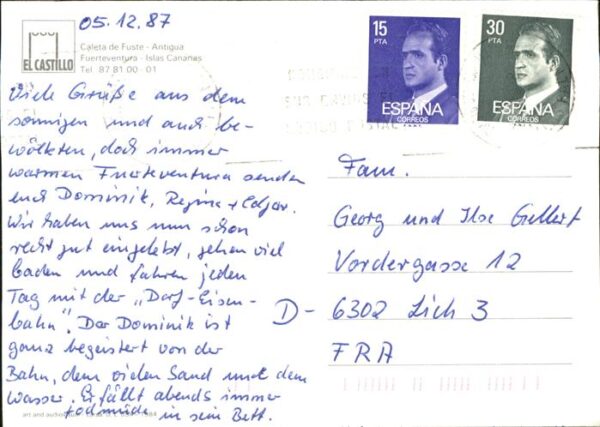 05.12.87
EL CASTILLO
Caleta de Fuste - Antigua
Fuerteventura - Islas Canarias
Tel. 87 81 00 - 01
15
PTA
ESPAÑA
CORREOS
30
PTA
ESPAÑA
CORREOS
Viele Grüße aus dem
sonnigen und auch be-
wölkten, doch immer
warmen Fuerteventura senden
euch Dominik, Regina + Edgar.
Wir haben uns nun schon
recht gut eingelebt, gehen viel
baden und fahren jeden
Tag mit der „Dorf-Eisen-
bahn". Der Dominik ist
ganz begeistert von der
Bahn, dem vielen Sand und dem
Wasser. Er fällt abends immer
todmüde in sein Bett.
Fam.
Georg und Ilse Gellert
Vordergasse 12
D- 6302 Lich 3
FRA